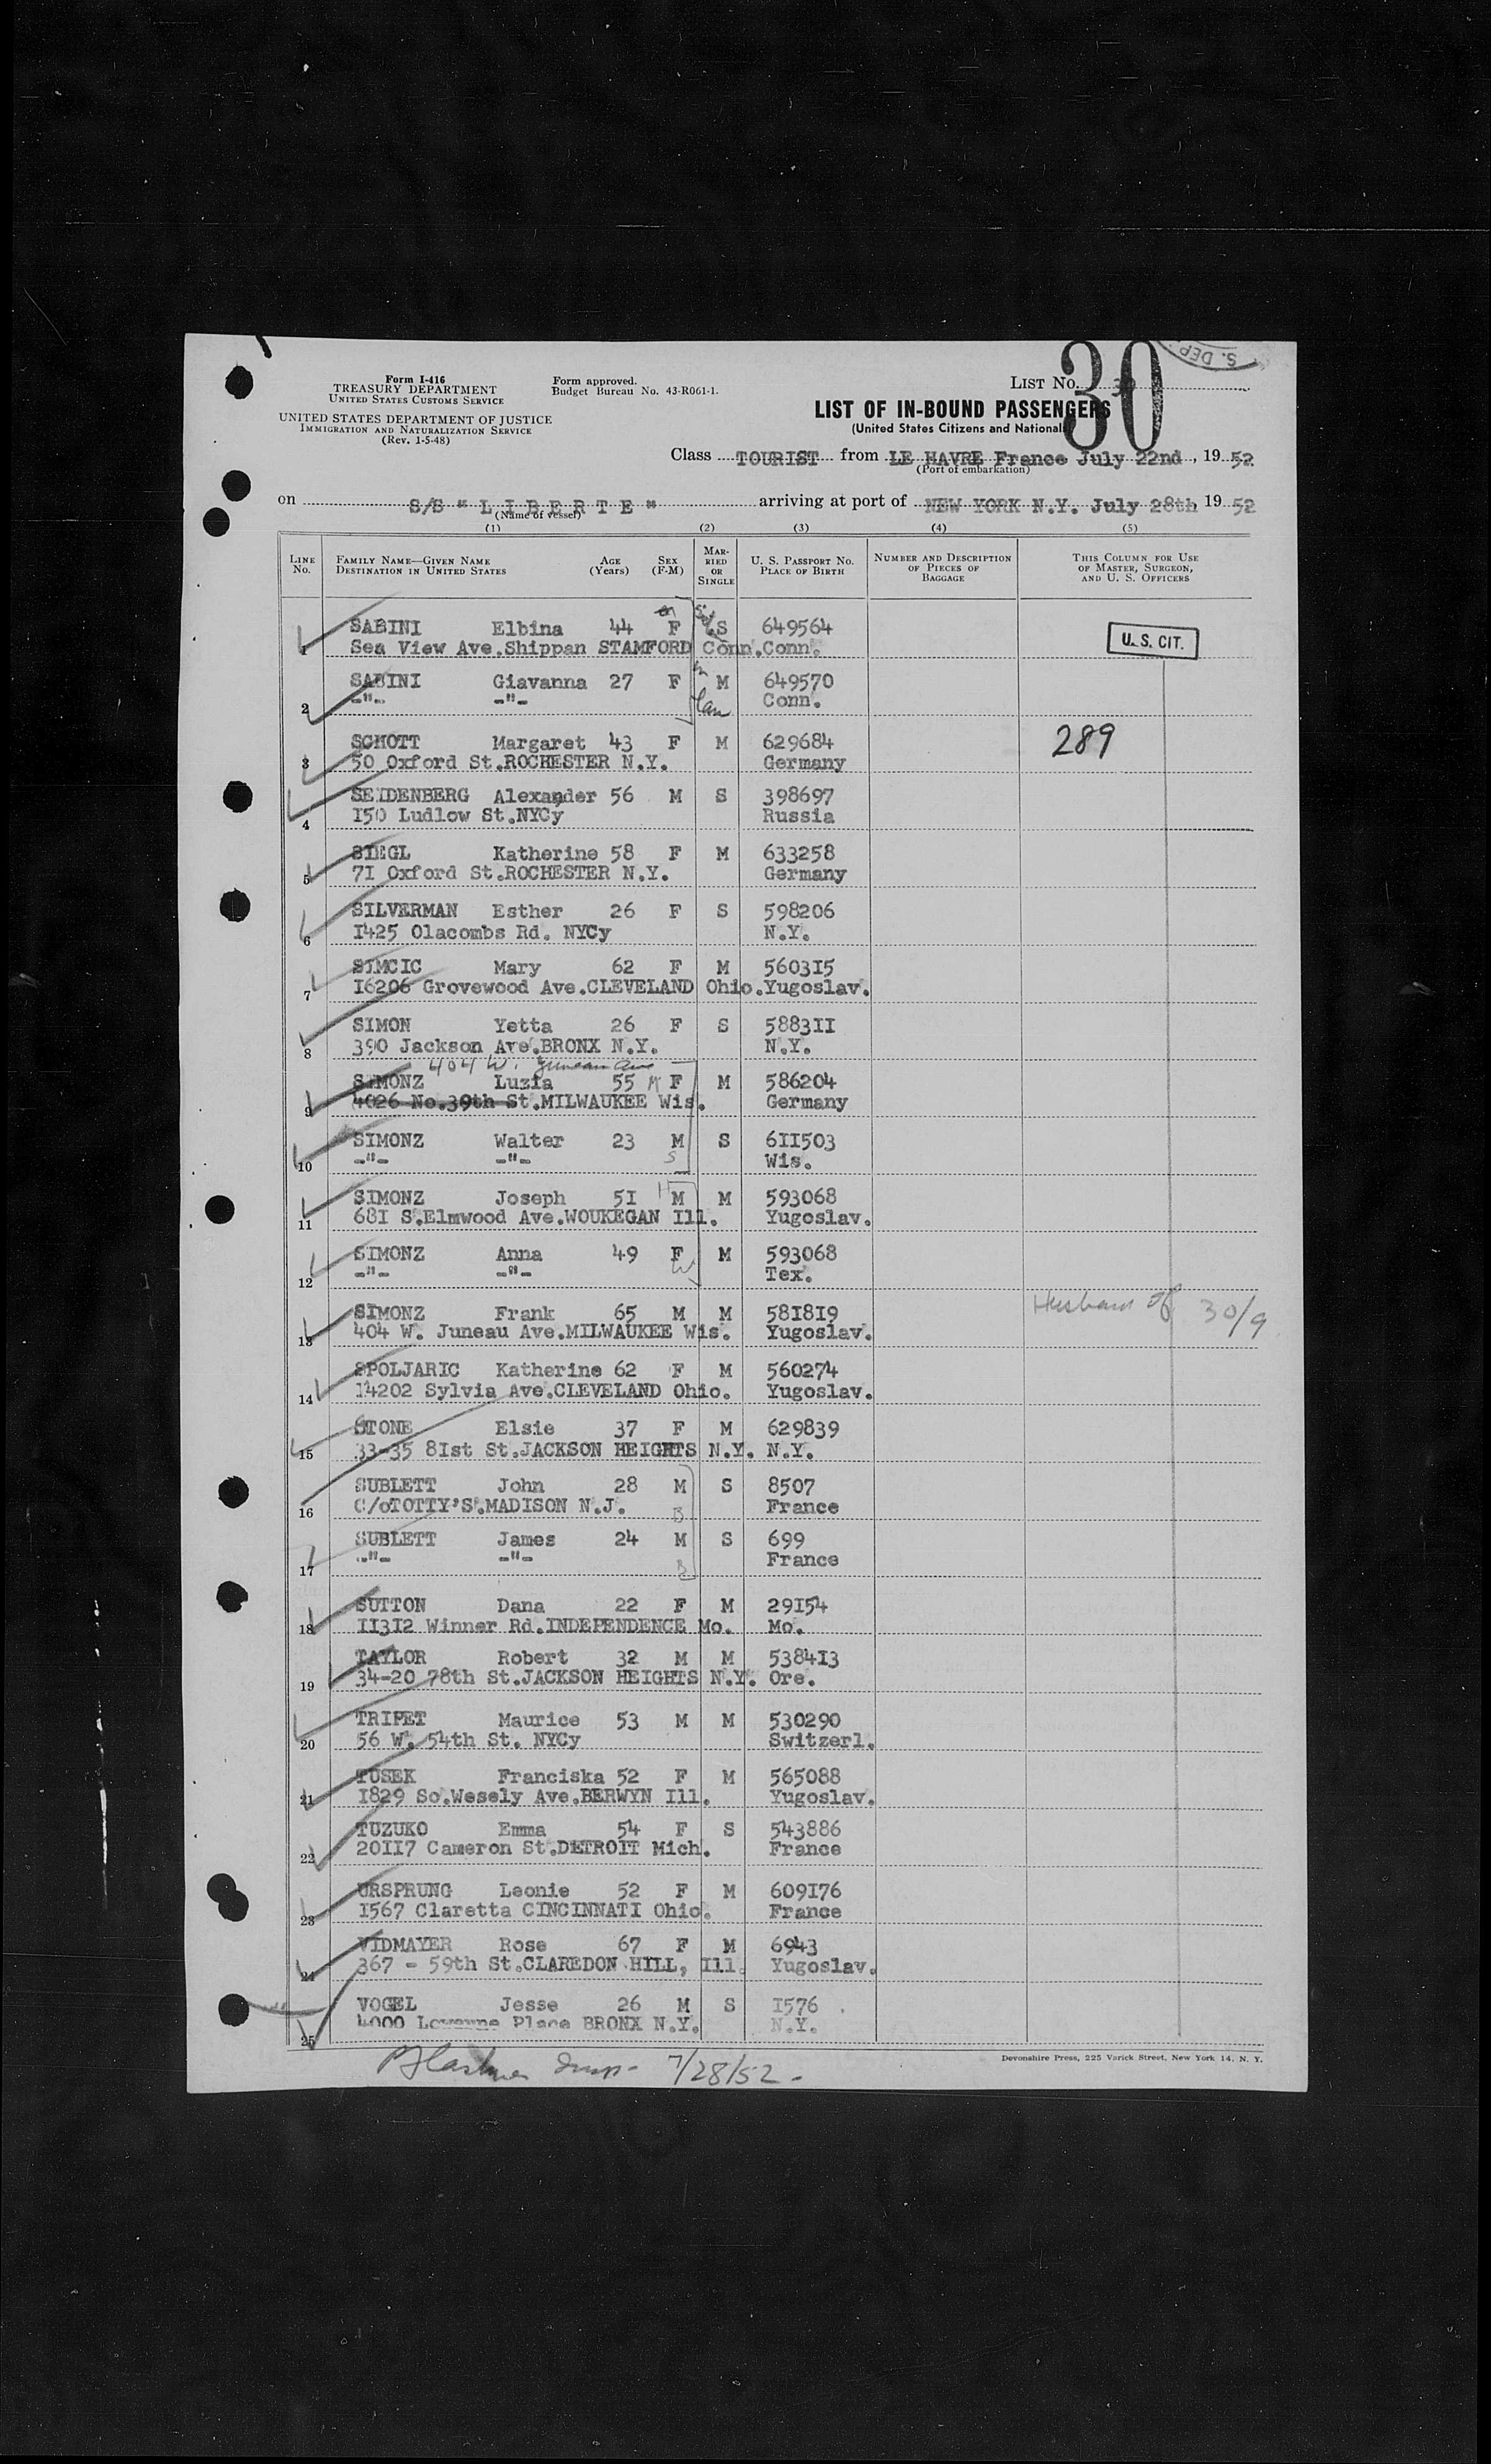 Form I-416
TREASURY DEPARTMENT
UNITED STATES CUSTOMS SERVICE
UNITED STATES DEPARTMENT OF JUSTICE
IMMIGRATION AND NATURALIZATION SERVICE
(Rev. 1-5-48)
Form approved.
Budget Bureau No. 43-R061-1.
S. DEP
LIST No. 30
LIST OF IN-BOUND PASSENGERS
(United States Citizens and Nationals)
Class TOURIST from LE HAVRE France July 22nd, 1952
(Port of embarkation)
on S/S "LIBERTE" arriving at port of NEW YORK N.Y. July 28th 1952
(Name of vessel)
(1) (2) (3) (4) (5)
LINE No. FAMILY NAME—GIVEN NAME DESTINATION IN UNITED STATES AGE (Years) SEX (F-M) MARRIED OR SINGLE U. S. PASSPORT NO. PLACE OF BIRTH NUMBER AND DESCRIPTION OF PIECES OF BAGGAGE THIS COLUMN FOR USE OF MASTER, SURGEON, AND U. S. OFFICERS
1 SABINI Elbina 44 F S 649564 U. S. CIT.
Sea View Ave.Shippan STAMFORD Conn.Conn.
2 SABINI Giavanna 27 F M 649570
-"- -"- Conn.
3 SCHOTT Margaret 43 F M 629684 289
50 Oxford St.ROCHESTER N.Y. Germany
4 SEIDENBERG Alexander 56 M S 398697
I50 Ludlow St.NYCy Russia
5 SIEGL Katherine 58 F M 633258
7I Oxford St.ROCHESTER N.Y. Germany
6 SILVERMAN Esther 26 F S 598206
I425 Olacombs Rd. NYCy N.Y.
7 SIMCIC Mary 62 F M 5603I5
I6206 Grovewood Ave.CLEVELAND Ohio.Yugoslav.
8 SIMON Yetta 26 F S 5883II
390 Jackson Ave.BRONX N.Y. N.Y.
404 W. Juneau Ave
9 SIMONZ Luzia 55 F M 586204
4026 No.39th St.MILWAUKEE Wis. Germany
10 SIMONZ Walter 23 M S 6II503
-"- -"- S Wis.
11 SIMONZ Joseph 5I H M M 593068
68I S.Elmwood Ave.WOUKEGAN Ill. Yugoslav.
12 SIMONZ Anna 49 F M 593068
-"- -"- W Tex.
13 SIMONZ Frank 65 M M 58I8I9 Husband of 30/9
404 W. Juneau Ave.MILWAUKEE Wis. Yugoslav.
14 SPOLJARIC Katherine 62 F M 560274
I4202 Sylvia Ave.CLEVELAND Ohio. Yugoslav.
15 STONE Elsie 37 F M 629839
33-35 8Ist St.JACKSON HEIGHTS N.Y. N.Y.
16 SUBLETT John 28 M S 8507
C/oTOTTY'S.MADISON N.J. B France
17 SUBLETT James 24 M S 699
-"- -"- B France
18 SUTTON Dana 22 F M 29I54
II3I2 Winner Rd.INDEPENDENCE Mo. Mo.
19 TAYLOR Robert 32 M M 5384I3
34-20 78th St.JACKSON HEIGHTS N.Y. Ore.
20 TRIPET Maurice 53 M M 530290
56 W. 54th St. NYCy Switzerl.
21 TUSEK Franciska 52 F M 565088
I829 So.Wesely Ave.BERWYN Ill. Yugoslav.
22 TUZUKO Emma 54 F S 543886
20II7 Cameron St.DETROIT Mich. France
23 URSPRUNG Leonie 52 F M 609I76
I567 Claretta CINCINNATI Ohio. France
24 VIDMAYER Rose 67 F M 6943
367 - 59th St.CLAREDON HILL, Ill. Yugoslav.
25 VOGEL Jesse 26 M S I576
4000 Place BRONX N.Y. N.Y.
7/28/52-
Devonshire Press, 225 Varick Street, New York 14, N. Y.